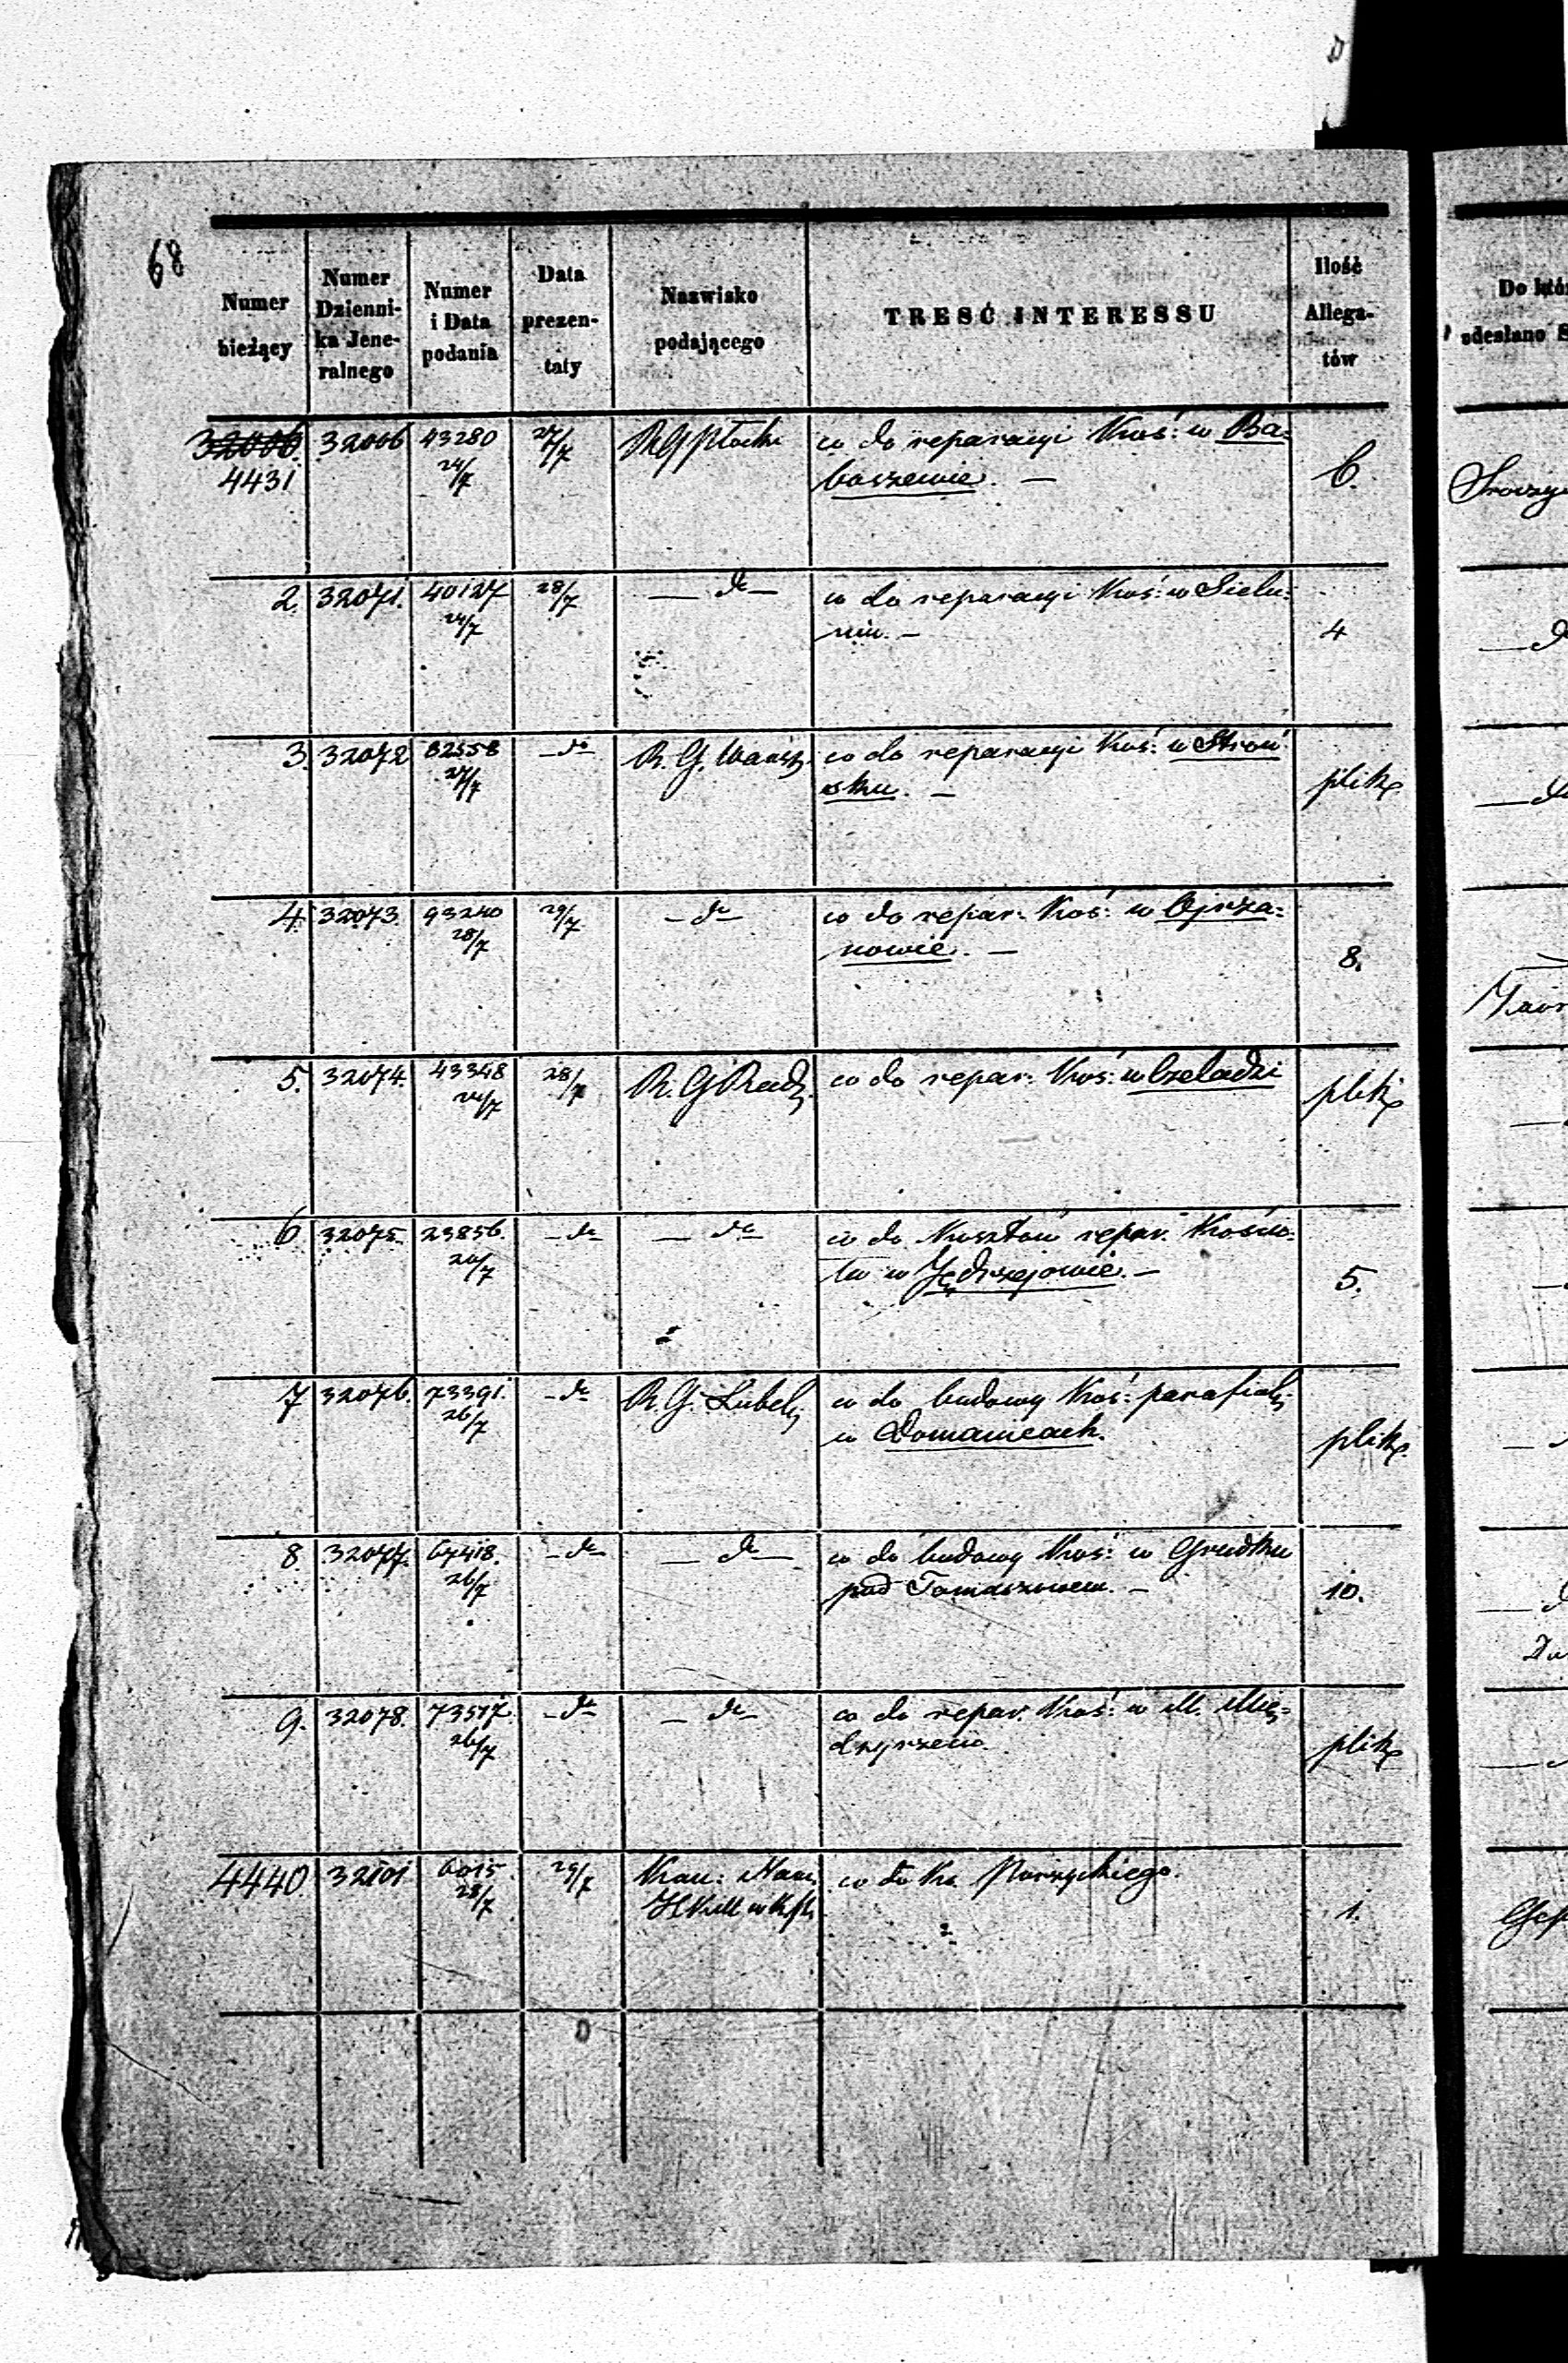 68
Numer bieżący | Numer Dzienni-ka Jene-ralnego | Numer i Data podania | Data prezen-taty | Nazwisko podającego | TREŚĆ INTERESSU | Ilość Allega-tów
32006 | 32006 | 43280 | 27/7 | RG Płocki | co do reparacyi Koś: w Ba=
4431 | 24/7 | baszewie. — | 6.
2. | 32071. | 40127 | 28/7 | — do — | co do reparacyi Koś: w Sielu=
24/7 | niu. — | 4
3. | 32072 | 82558 | — do | R. G. Warsz. | co do reparacyi Koś: w Stroń
27/7 | sku. — | plik
4. | 32073. | 93240 | 29/7 | — do — | co do repar: Koś: w Ojrza=
28/7 | nowie. — | 8.
5. | 32074. | 43348 | 28/7 | R. G Rad. | co do repar: Koś: w Czeladzi
24/7 | plik
6 | 32075. | 23856. | — do — | — do — | co do Kosztów repar. Kościo=
20/7 | ła w Jędrzejowie. — | 5.
7 | 32076. | 73391. | — do | R. G. Lubel. | co do budowy Koś: parafial.
26/7 | w Domanicach. | plik
8 | 32077. | 67418. | — do — | — do — | co do budowy Koś: w Gródku
26/7 | pod Tomaszowem. — | 10.
9. | 32078. | 73517. | — do — | — do — | co do repar. Koś: w M. Mię=
26/7 | dzyrzeciu. | plik
4440. | 32101 | 6015. | 29/7 | co do Ks.
28/7 | 1.